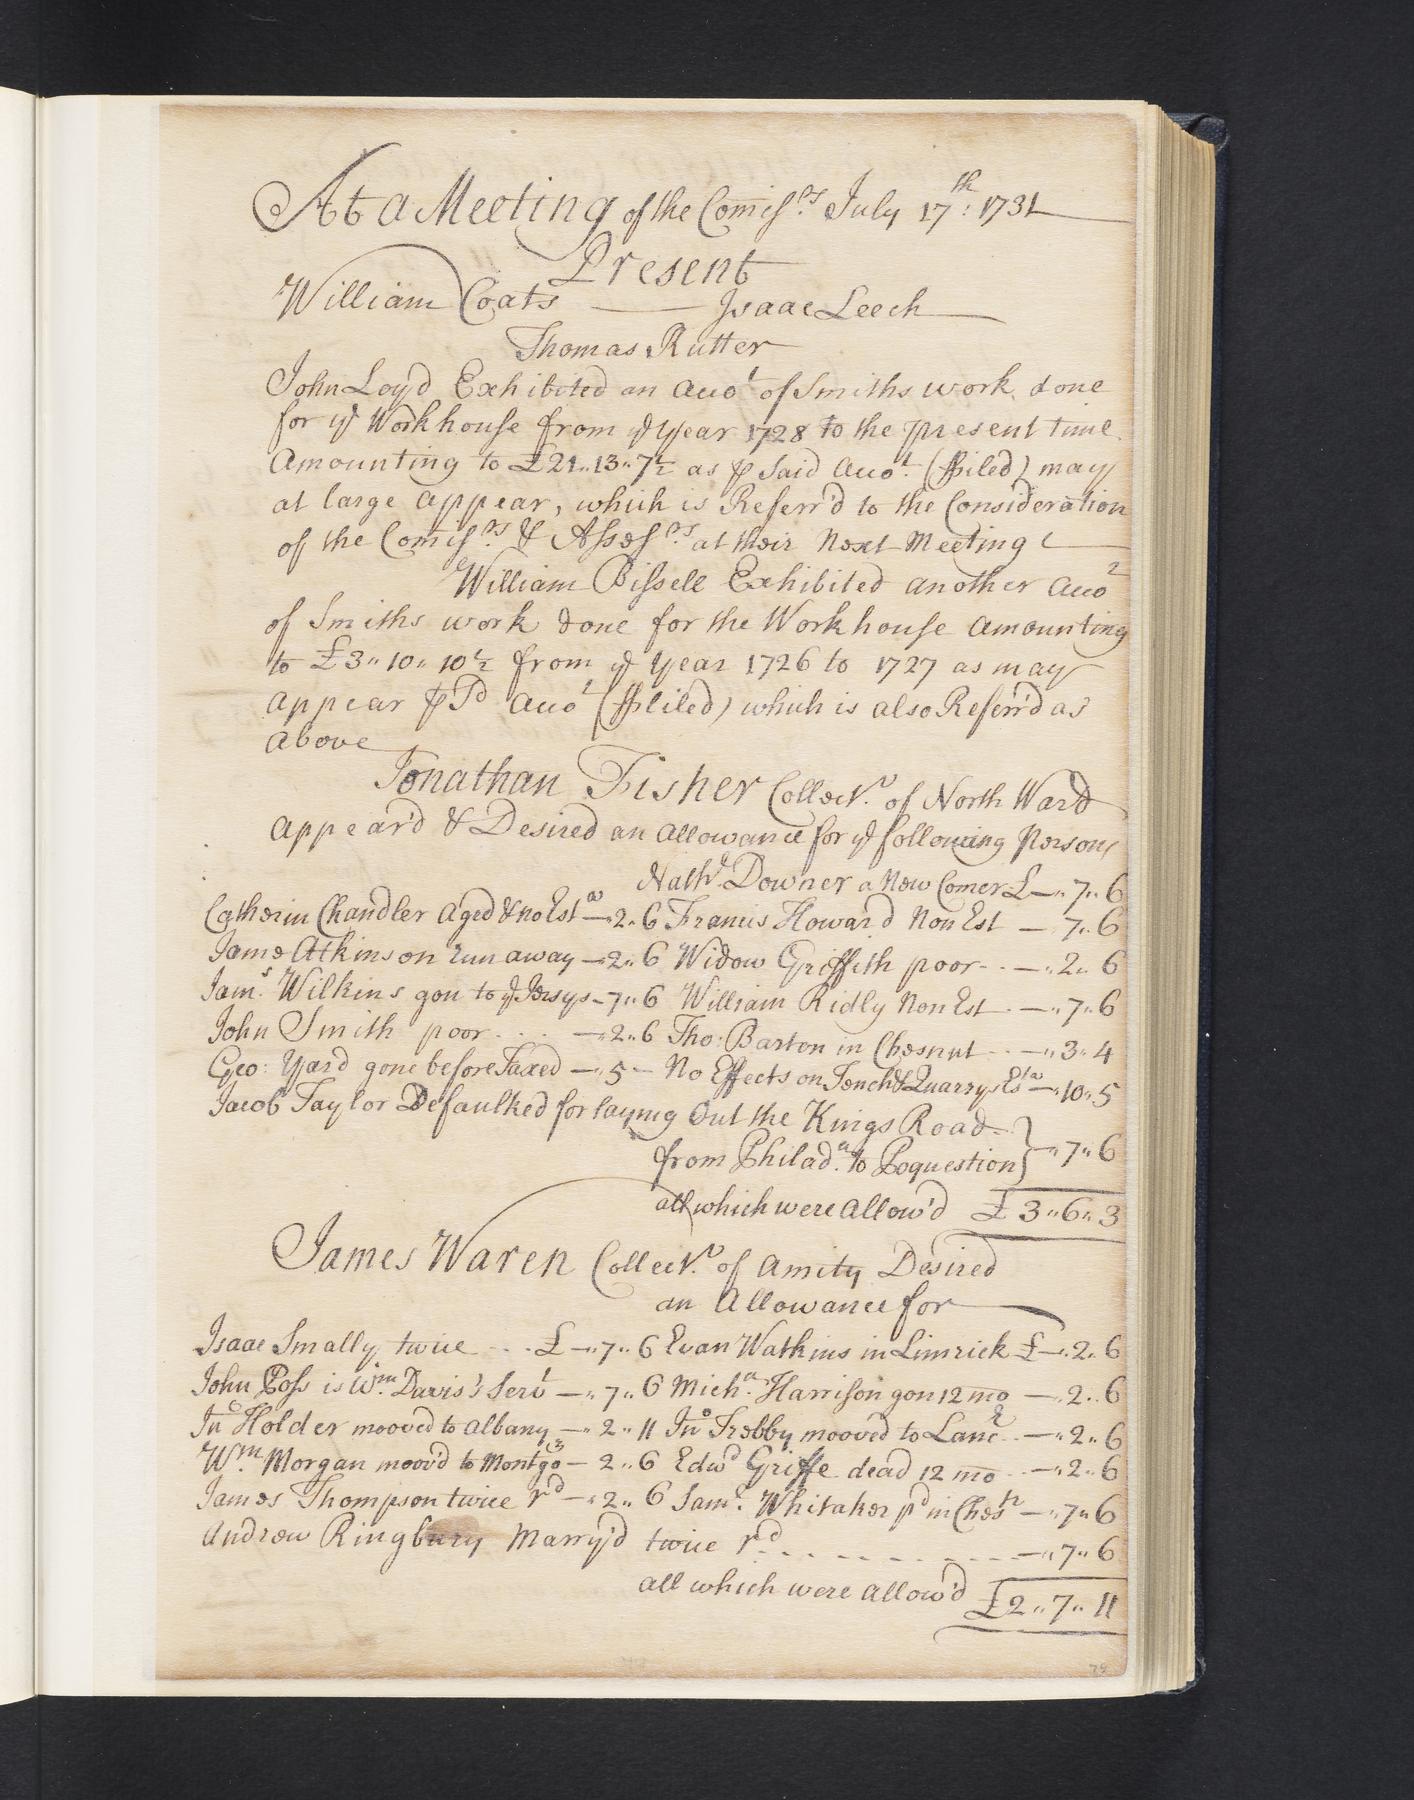 At a Meeting of the Comiss.rs July 17.th 1731
Present
William Coats — Isaac Leech
Thomas Rutter
John Loyd Exhibited an Acco.t of Smiths work done
for ye Workhouse from ye year 1728 to the present time
Amounting to £21..13..7½ as ℘ said Acco.t (ffiled) may
at large appear, which is Referr'd to the Consideration
of the Comiss.rs & Assess.rs at their Next Meeting
William Bissell Exhibited another Acco.t
of Smiths work done for the Workhouse Amounting
to £3..10..10½ from ye year 1726 to 1727 as may
appear ℘ Sd Acco.t (ffiled) which is also Referr'd as
above
Jonathan Fisher Collect.r of North Ward
appear'd & Desired an allowance for ye following Persons
Nath.l Downer a New Comer £—..7..6
Catherin Chandler Aged & no Est.a —..2..6 Francis Howard Non Est — 7..6
Jame Atkinson run away —..2..6 Widow Griffith poor - - —..2..6
Jam.s Wilkins gon to ye Jersys - 7..6 William Ridly Non Est - —..7..6
John Smith poor - - - —..2..6 Tho: Barton in Chesnut - - —..3..4
Geo: Yard gone before Taxed —..5 — No Effects on Tench & Quarrys Est.a —..10..5
Jacob Taylor Defaulked for laying Out the Kings Road
from Philad.a to Poquestion } —..7..6
all which were Allow'd £3..6..3
James Waren Collect.r of Amity Desired
an Allowance for
Isaac Smally twice - - - £—..7..6 Evan Watkins in Limrick £—..2..6
John Poss is Wm. Davis's Serv.t —..7..6 Mich.a Harrison gon 12 mo —..2..6
Jno Holder mooved to Albany —..2..11 Jno Trebby mooved to Lanc.r - —..2..6
Wm. Morgan moov'd to Montgo — 2..6 Edwd Griffe dead 12 mo - - —..2..6
James Thompson twice rd —..2..6 Sam.l Whitaker pd in Chest.r —..7..6
Andrew Ringbury Marry'd twice rd - - - - - - - - —..7..6
all which were Allow'd £2..7..11
79